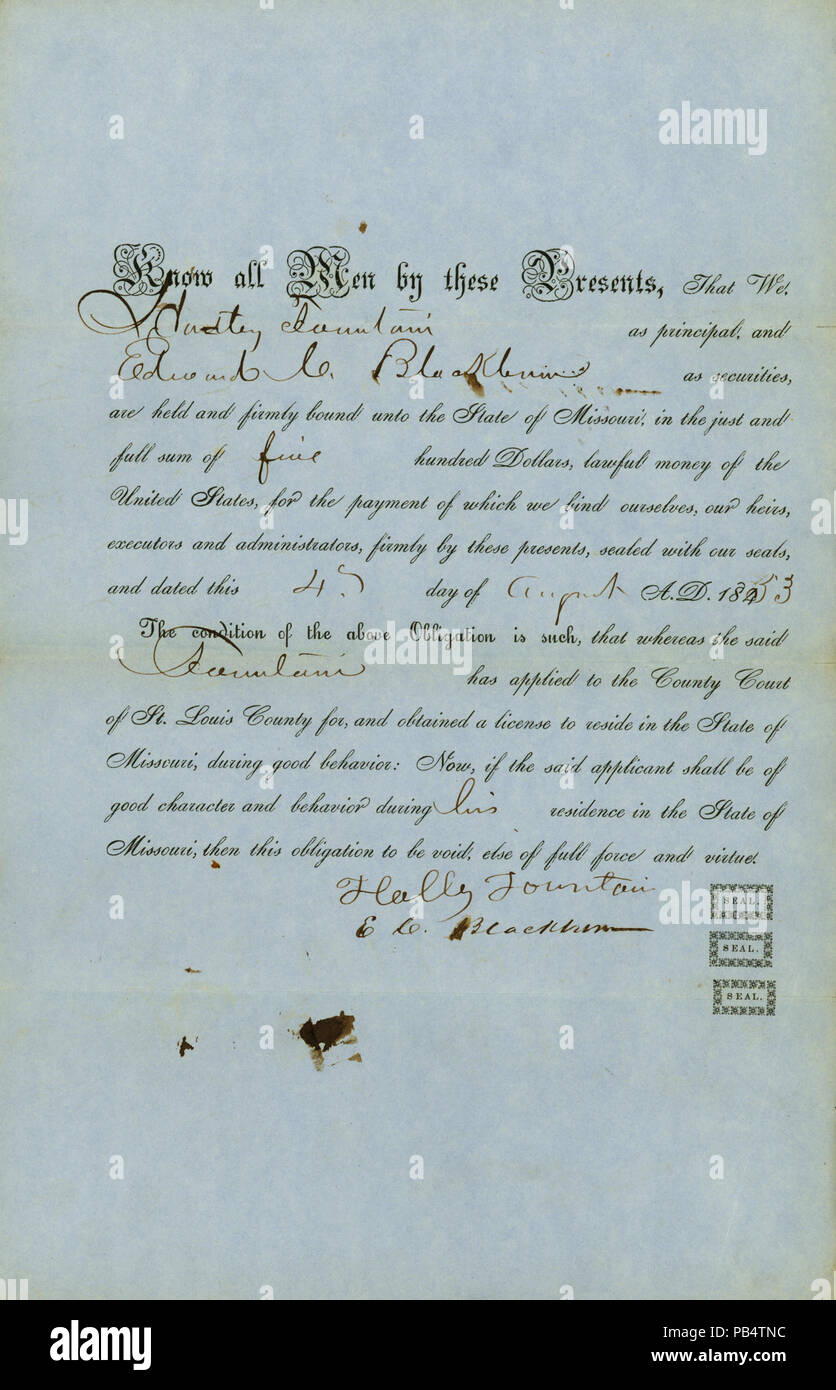 Know all Men by these Presents, That We,
Fountain as principal, and
Edward C. Blackburn as securities,
are held and firmly bound unto the State of Missouri, in the just and
full sum of five hundred Dollars, lawful money of the
United States, for the payment of which we bind ourselves, our heirs,
executors and administrators, firmly by these presents, sealed with our seals,
and dated this day of August A.D. 18453
The condition of the above Obligation is such, that whereas the said
Fountain has applied to the County Court
of St. Louis County for, and obtained a license to reside in the State of
Missouri, during good behavior: Now, if the said applicant shall be of
good character and behavior during his residence in the State of
Missouri, then this obligation to be void, else of full force and virtue.
Fountain SEAL.
E C. Blackburn SEAL.
SEAL.
a alamy
alamy
a
a
a
alamy
Image ID: PB4TNC
www.alamy.com